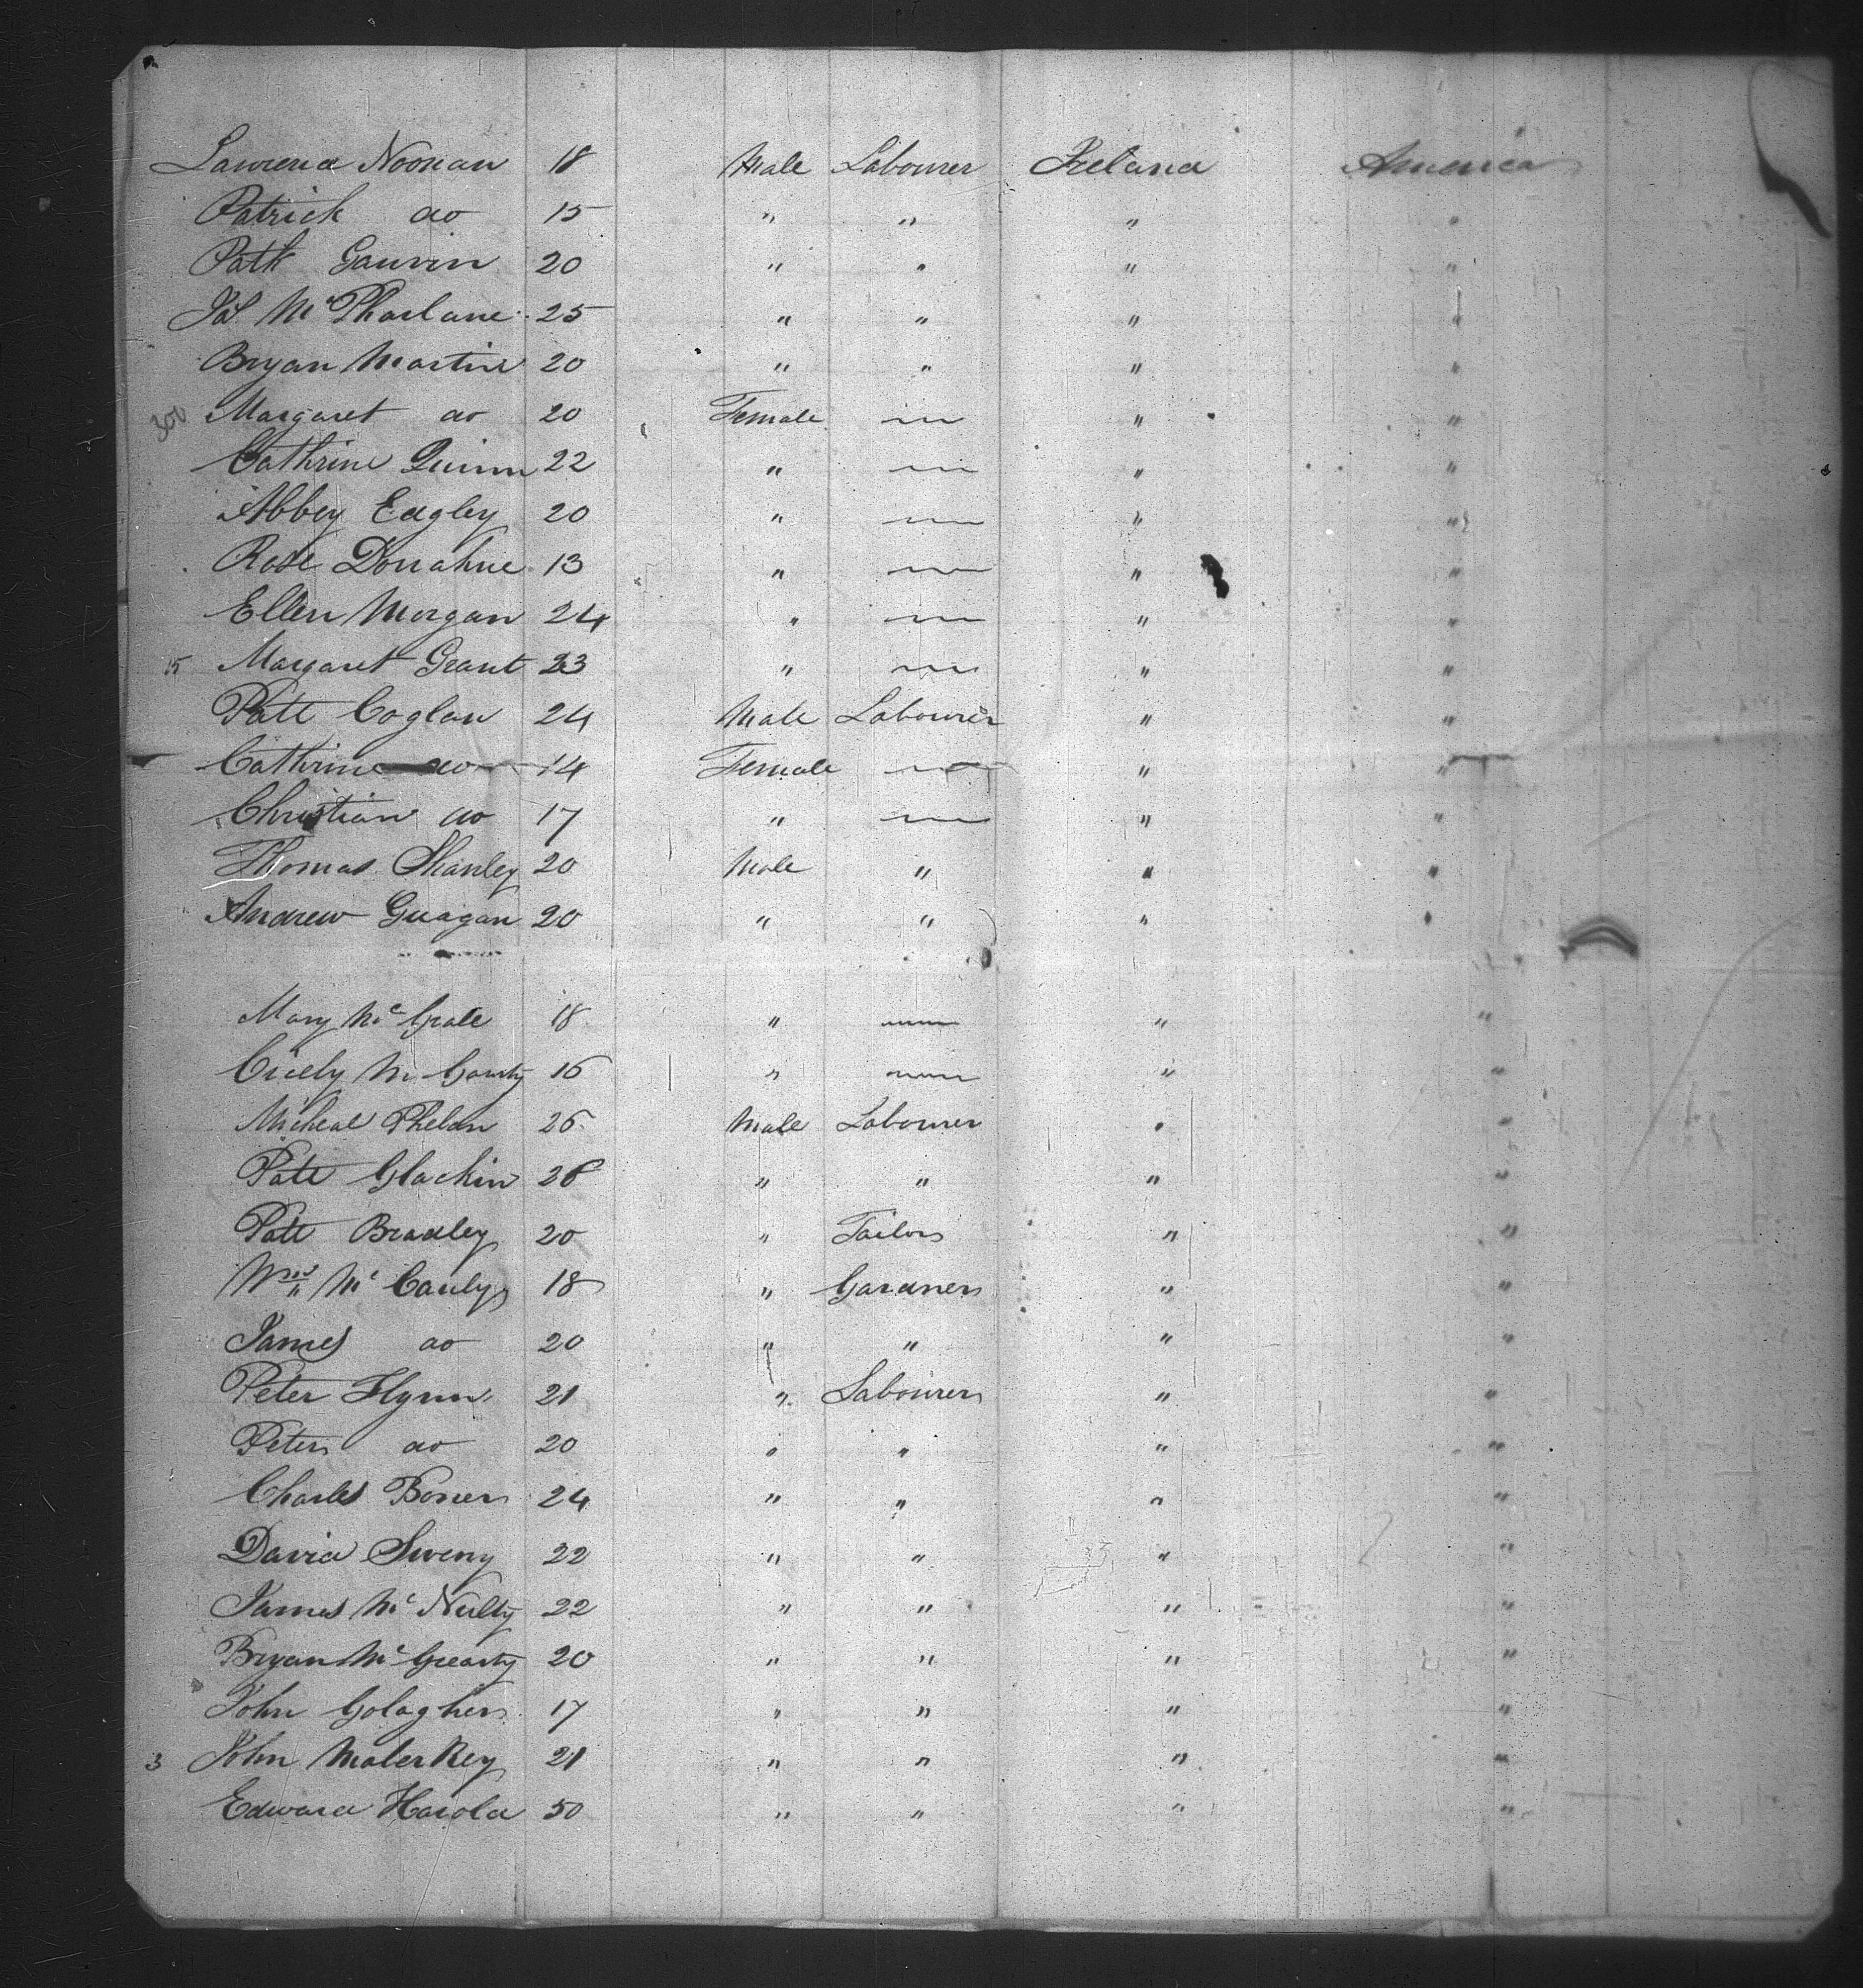 Lawrence Noonan 18 Male Labourer Ireland America
Patrick do 15 " " " "
Patk Gauvin 20 " " " "
Jas McPharlane 25 " " " "
Bryan Martin 20 " " " "
300 Margaret do 20 Female — " "
Cathrine Quinn 22 " — " "
Abbey Eagley 20 " — " "
Rose Donahue 13 " — " "
Ellen Morgan 24 " — " "
15 Margaret Grant 23 " — " "
Patt Coglan 24 Male Labourer " "
Cathrine do 14 Female — " "
Christian do 17 " — " "
Thomas Shanley 20 Male " " "
Andrew Guagan 20 " " " "
Mary Mc Grale 18 " — " "
Cicely Mc Garty 16 " — " "
Micheal Phelan 26 Male Labourer " "
Patt Glackin 26 " " " "
Patt Bradley 20 " Tailor " "
Wm Mc Cauly 18 " Gardner " "
James do 20 " " " "
Peter Flynn 21 " Labourer " "
Peter do 20 " " " "
Charles Boner 24 " " " "
David Sweny 22 " " " "
James Mc Nulty 22 " " " "
Bryan Mc Gearty 20 " " " "
John Golagher 17 " " " "
3 John MalerKey 21 " " " "
Edward Harold 50 " " " "